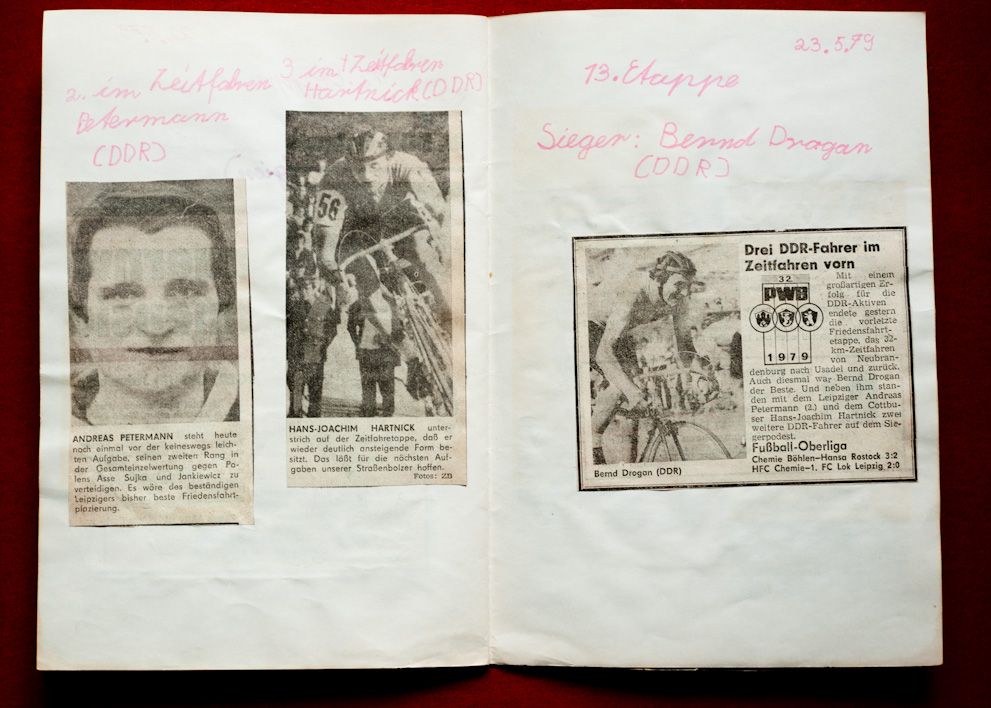 2. im Zeitfahren
Petermann
(DDR)
3 im Zeitfahren
Hartnick (DDR)
56
ANDREAS PETERMANN steht heute
noch einmal vor der keineswegs leich-
ten Aufgabe, seinen zweiten Rang in
der Gesamteinzelwertung gegen Po-
lens Asse Sujka und Jankiewicz zu
verteidigen. Es wäre des beständigen
Leipzigers bisher beste Friedensfahrt-
plazierung.
HANS-JOACHIM HARTNICK unter-
strich auf der Zeitfahretappe, daß er
wieder deutlich ansteigende Form be-
sitzt. Das läßt für die nächsten Auf-
gaben unserer Straßenbolzer hoffen.
Fotos: ZB
23.5.79
13. Etappe
Sieger: Bernd Drogan
(DDR)
Bernd Drogan (DDR)
Drei DDR-Fahrer im
Zeitfahren vorn
32
PWB
1979
Mit einem
großartigen Er-
folg für die
DDR-Aktiven
endete gestern
die vorletzte
Friedensfahrt-
etappe, das 32-
km-Zeitfahren
von Neubran-
denburg nach Usadel und zurück.
Auch diesmal war Bernd Drogan
der Beste. Und neben ihm stan-
den mit dem Leipziger Andreas
Petermann (2.) und dem Cottbu-
ser Hans-Joachim Hartnick zwei
weitere DDR-Fahrer auf dem Sie-
gerpodest.
Fußball-Oberliga
Chemie Böhlen–Hansa Rostock 3:2
HFC Chemie–1. FC Lok Leipzig 2:0